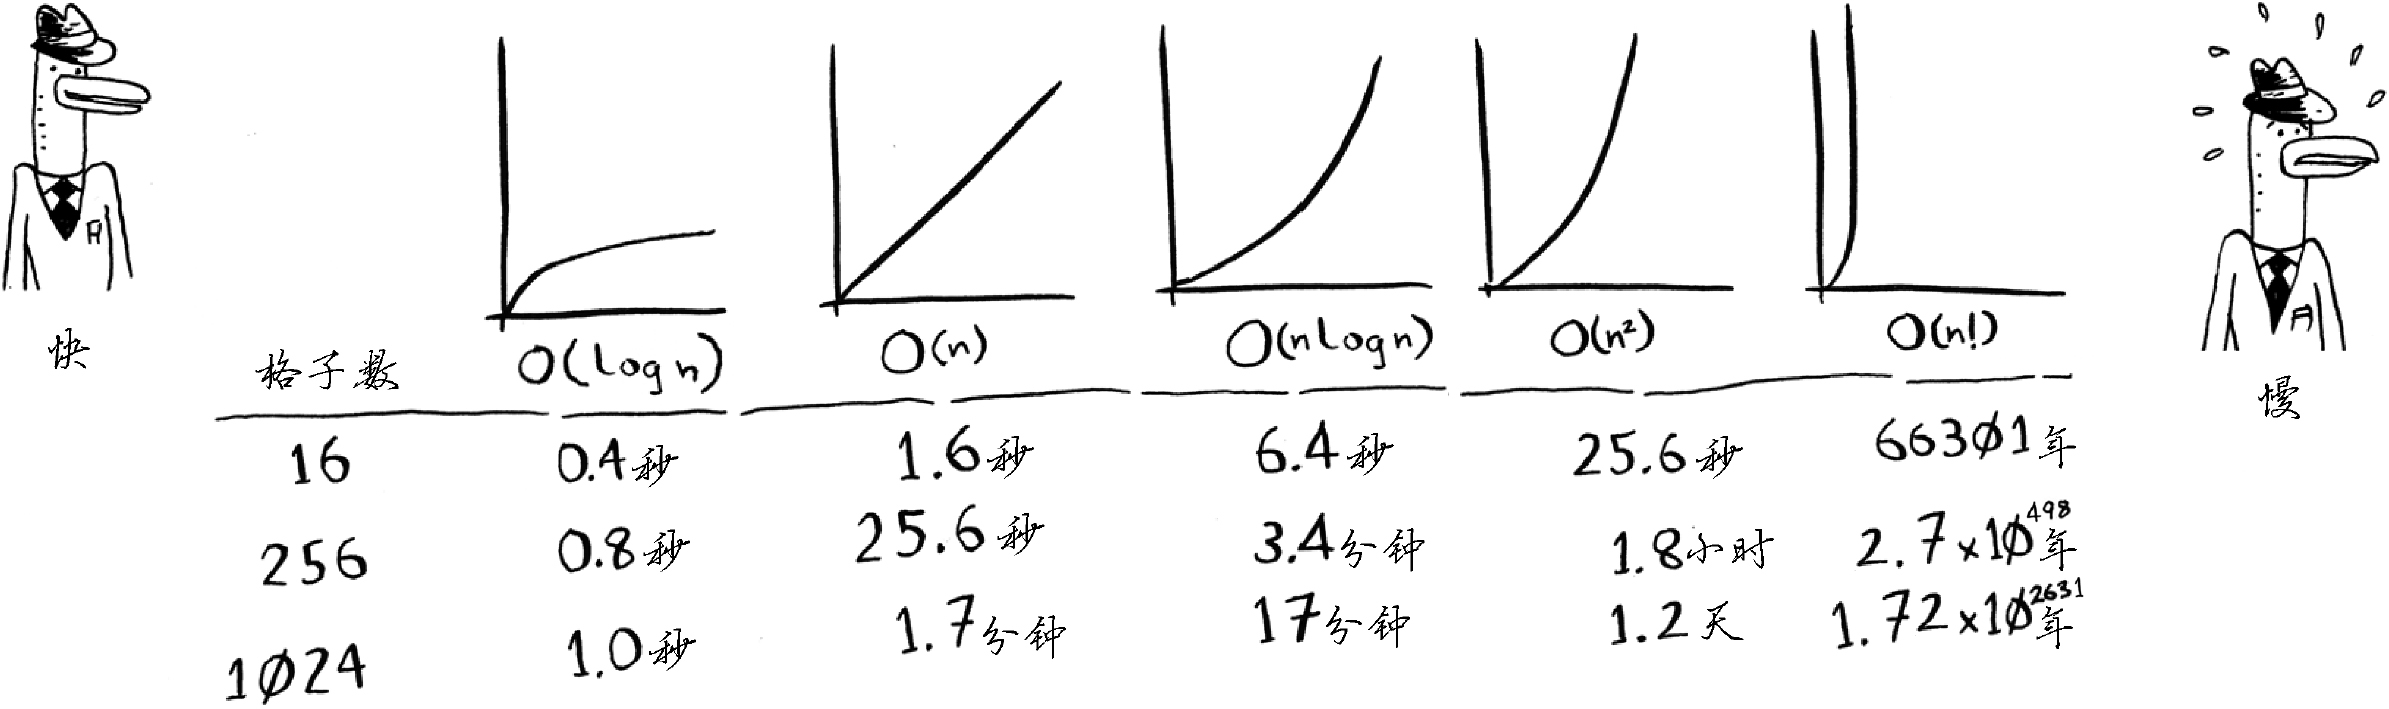 快
慢
O(log n) O(n) O(n log n) O(n²) O(n!)
格子数
16 0.4秒 1.6秒 6.4秒 25.6秒 66301年
256 0.8秒 25.6秒 3.4分钟 1.8小时 2.7×10⁴⁹⁸年
1024 1.0秒 1.7分钟 17分钟 1.2天 1.72×10²⁶³¹年